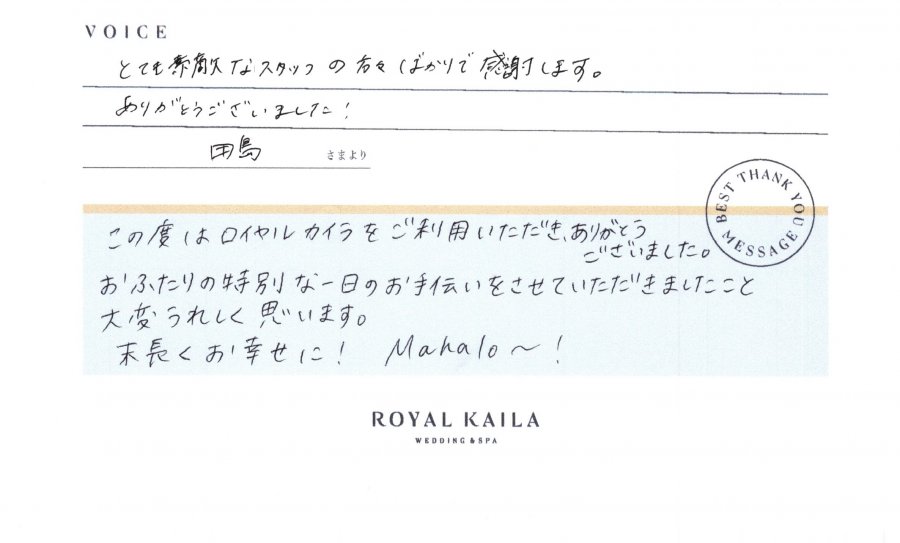 VOICE
とても素敵なスタッフの方々ばかりで感謝します。
ありがとうございました!
田島 さまより
BEST THANK YOU MESSAGE
この度はロイヤルカイラをご利用いただき、ありがとう
ございました。
おふたりの特別な一日のお手伝いをさせていただきましたこと
大変うれしく思います。
末長くお幸せに! Mahalo〜!
ROYAL KAILA
WEDDING & SPA